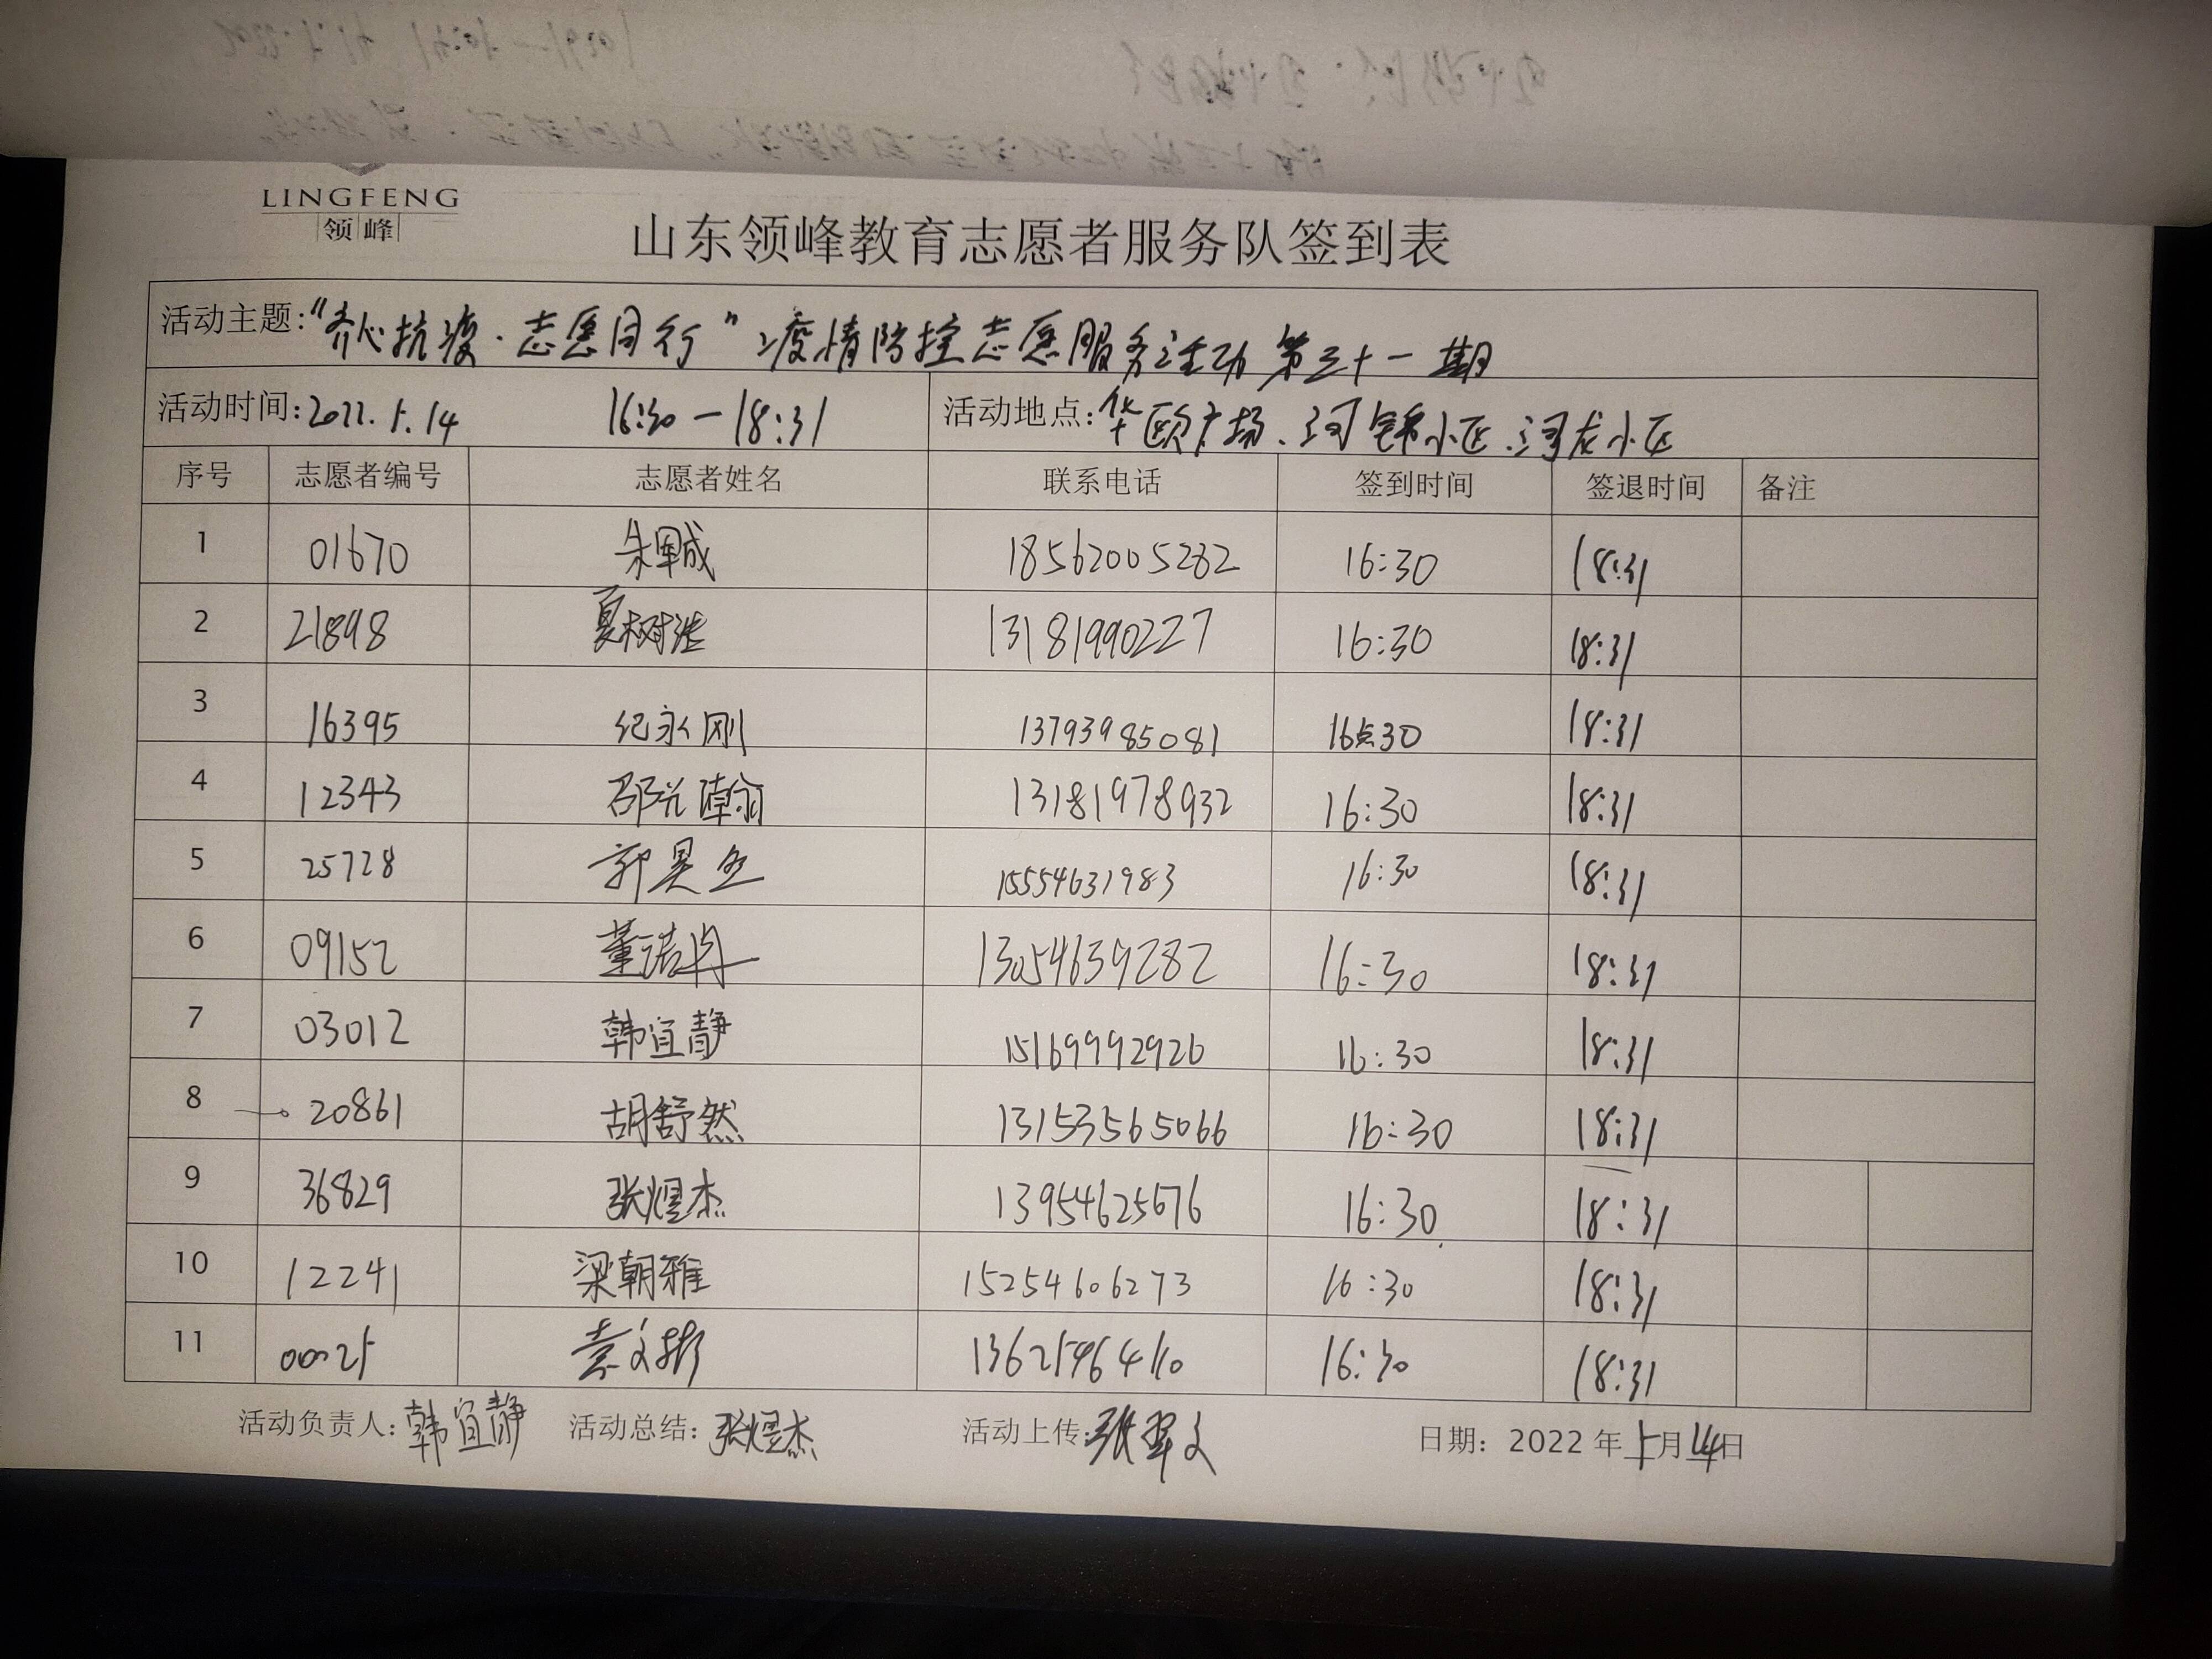 LINGFENG
领峰
山东领峰教育志愿者服务队签到表
活动主题:"齐心抗疫·志愿同行"疫情防控志愿服务活动第三十一期
活动时间:2022.5.14 16:30-18:31 活动地点:华欧广场、河锦小区、河龙小区
序号 志愿者编号 志愿者姓名 联系电话 签到时间 签退时间 备注
1 01670 朱军成 18562005282 16:30 18:31
2 21898 夏树浩 13181990227 16:30 18:31
3 16395 纪永刚 13793985081 16点30 18:31
4 12343 邵光瀚 13181978932 16:30 18:31
5 25728 郭昊 15554631983 16:30 18:31
6 09152 董诺冉 13054639282 16:30 18:31
7 03012 韩宜静 15169992926 16:30 18:31
8 20861 胡舒然 13153565066 16:30 18:31
9 36829 张煜杰 13954625676 16:30 18:31
10 12241 梁朝雅 15254606273 16:30 18:31
11 00025 袁文彬 13621546410 16:30 18:31
活动负责人:韩宜静 活动总结:张煜杰 活动上传:张翠文 日期:2022年5月14日